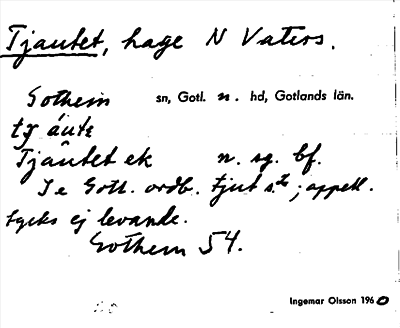 Tjautet, hage N Vaters.
Gothem sn, Gotl. n. hd, Gotlands län.
Tjautet ek n. sg. bf.
Se Gotl. ordb. tjut s.²; appell.
tycks ej levande.
Gothem 54.
Ingemar Olsson 1960